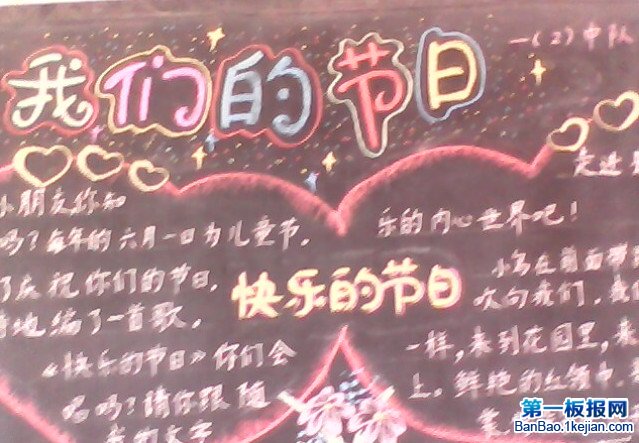 我们的节日
一(2)中队
小朋友你知
吗?每年的六月一日为儿童节,
了庆祝你们的节日,
地编了一首歌。
《快乐的节日》你们会
唱吗?请你跟随
我的文字
走进
乐的内心世界吧!
快乐的节日
小鸟在前面带
吹向我们,我
一样,来到花园里,来
上。鲜艳的红领巾,
第一板报网
BanBao.1kejian.com